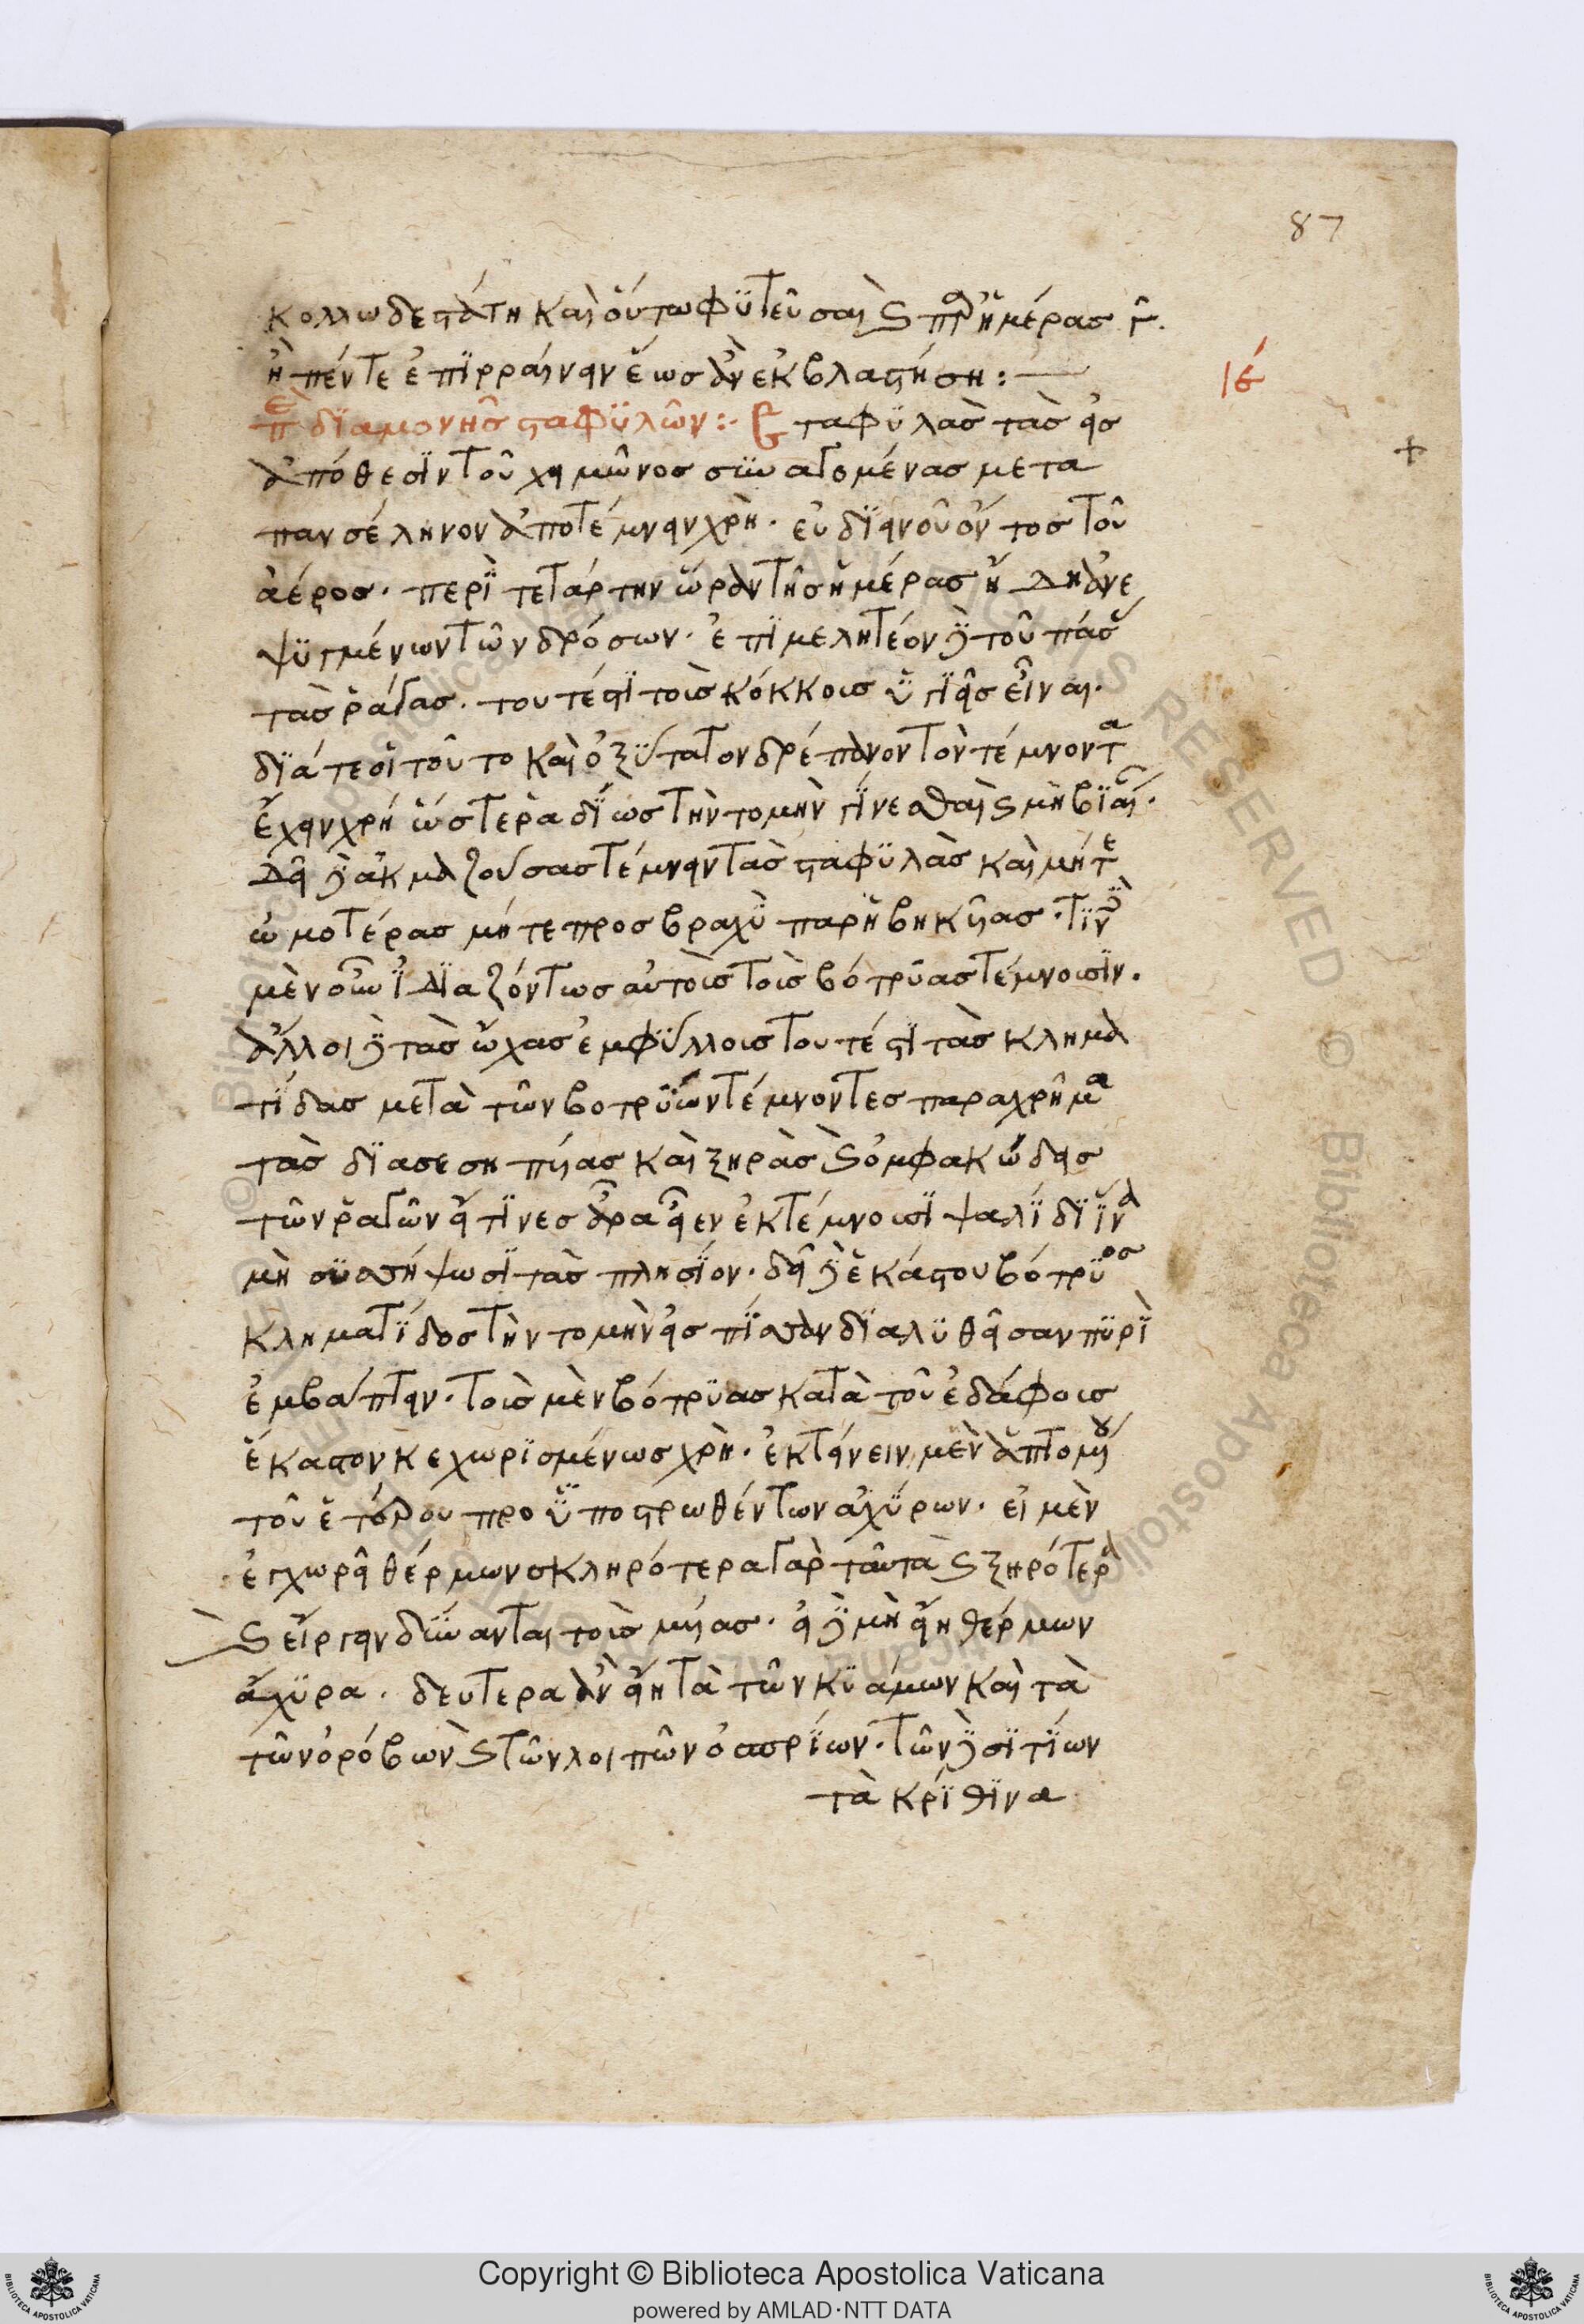 87
κολλωδεστάτη καὶ οὕτω φϋτεῦσαι καὶ παρ ἡμέρας γ.
ἢ πέντε ἐπϊρραίνειν ἕως ἂν ἐκβλαστήση :
ιε
περὶ δϊαμονῆς σταφϋλῶν :. Σταφϋλὰς τὰς εἰς
ἀπόθεσϊν τοῦ χειμῶνος συναγομένας μετα
πανσέληνον ἀποτέμνειν χρὴ. εὐδϊεινοῦ ὄντος τοῦ
ἀέρος. περὶ τετάρτην ὥραν τῆς ἡμέρας ἤδη ἀνε
ψϋγμένων τῶν δρόσων. ἐπϊμελητέον δὲ τοῦ πάσας
τὰς ῥάγας. τουτέστϊ τοὺς κόκκους ὑγϊεῖς εἶναι.
δϊά τε οἱ τοῦτο καὶ ὀξϋτατον δρέπανον τὸν τέμνοντα
ἔχειν χρή ὥστε ραδΐως τὴν τομὴν γΐνεσθαι καὶ μὴ βϊαίως.
δεῖ δὲ ἀκμαζούσας τέμνειν τὰς σταφϋλὰς καὶ μήτε
ὠμοτέρας μήτε προς βραχὺ παρηβηκυίας. τϊνὲς
μὲν οὖν ἰδϊαζόντως αὐτοὺς τοὺς βότρϋας τέμνουσϊν.
ἄλλοι δὲ τὰς ὤχας ἐμφΰλλους τουτέστϊ τὰς κλημα
τΐδας μετὰ τῶν βοτρΰων τέμνοντες παραχρῆμα
τὰς δϊασεσηπυίας καὶ ξηρὰς καὶ ὀμφακώδεις
τῶν ῥαγῶν εἴ τϊνες ἄρα εἶεν ἐκτέμνουσϊ ψαλΐδϊ ἵνα
μὴ συσσήψωσϊ τὰς πλησΐον. δεῖ δὲ ἑκάστου βότρϋος
κληματΐδος τὴν τομὴν εἰς πΐσσαν δϊαλϋθεῖσαν πϋρὶ
ἐμβάπτειν. τοὺς μὲν βότρϋας κατὰ τοῦ ἐδάφους
ἕκαστον κεχωρϊσμένως χρὴ. ἐκτείνειν μὲν ἁπτομένου
τοῦ ἑτέρου προϋποστρωθέντων ἀχΰρων. εἰ μὲν
ἐγχωρεῖ θέρμων σκληρότερα γὰρ ταῦτα καὶ ξηρότερα
καὶ εἴργειν δϋνανται τοὺς μύας. εἰ δὲ μὴ εἴη θέρμων
ἄχϋρα. δευτερα ἂν εἴη τὰ τῶν κϋάμων καὶ τὰ
τῶν ὀρόβων καὶ τῶν λοιπῶν ὀσπρΐων. τῶν δὲ σϊτΐων
τὰ κρΐθϊνα
Copyright © Biblioteca Apostolica Vaticana
powered by AMLAD·NTT DATA